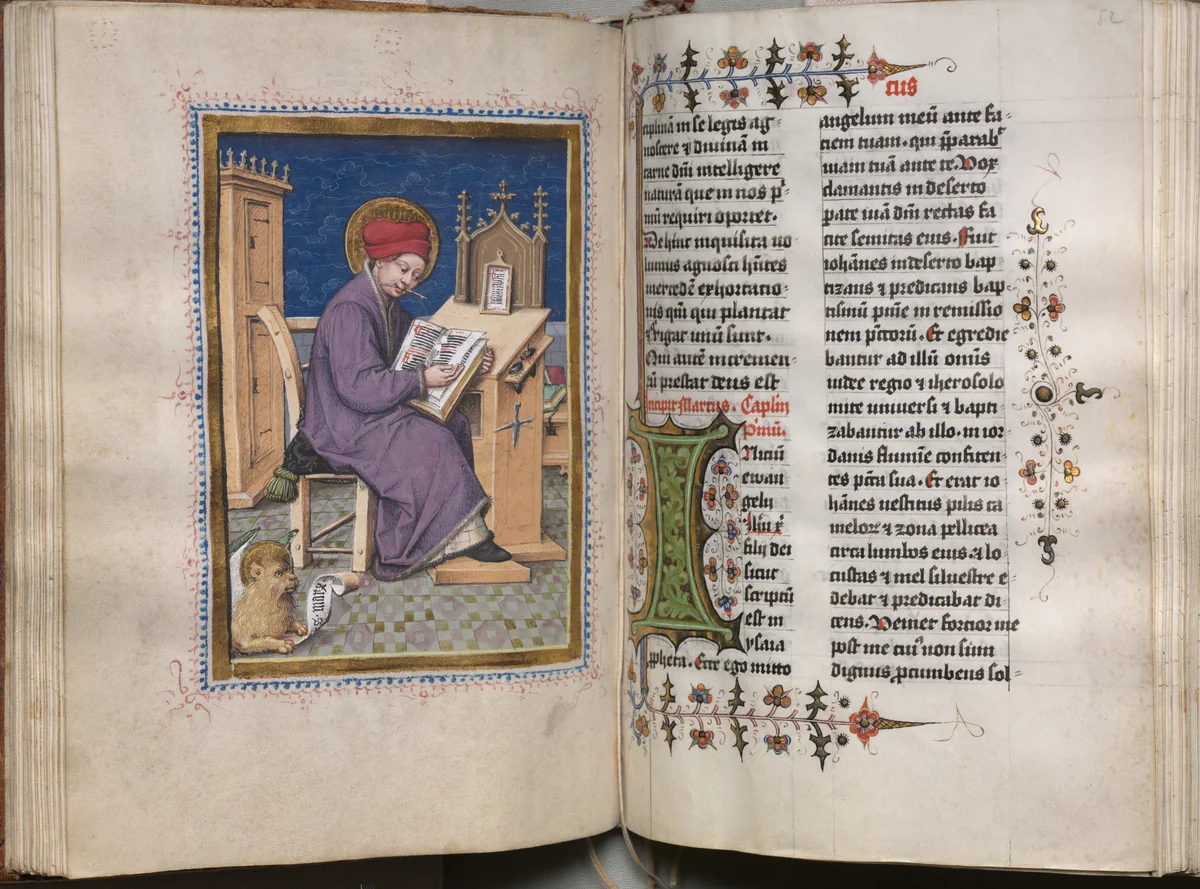 s. marc
52
cus
ciplinā in se legis ag=
noscere ⁊ diuinā in
carne dn̄i intelligere
naturā que in nos p̄=
mū requiri oportet.
Dehinc inquisita uo=
lumus agnosci hn̄tes
mercedē exhortatio=
nis qm̄ qui plantat
⁊ rigat unū sunt.
Qui autē incremen=
tū prestat deus est
Incipit Marcus. Caplm
P'mū.
INiciū
ewan
gelij
ihu xp̄i
filij dei
sicut
scriptū
est in
ysaia
ꝓpheta. Ecce ego mitto
angelum meū ante fa=
ciem tuam. qui p̄parabᵗ
uiam tuā ante te. Vox
clamantis in deserto
parate uiā dn̄i rectas fa
cite semitas eius. Fuit
iohānes in deserto bap
tizans ⁊ predicans bap
tismū pn̄ie in remissio
nem pc̄torū. Et egredie
bantur ad illū om̄is
iudee regio ⁊ iherosolo
mite uniuersi ⁊ bapti=
zabantur ab illo. in ior=
danis flumīe confiten=
tes pc̄cā sua. Et erat io=
hānes uestitus pilis ca
meloꝝ ⁊ zona pellicea
circa lumbos eius. ⁊ lo
custas ⁊ mel siluestre e=
debat ⁊ predicabat di
cens. Veniet fortior me
post me cui' non sum
dignus ꝓcumbens sol